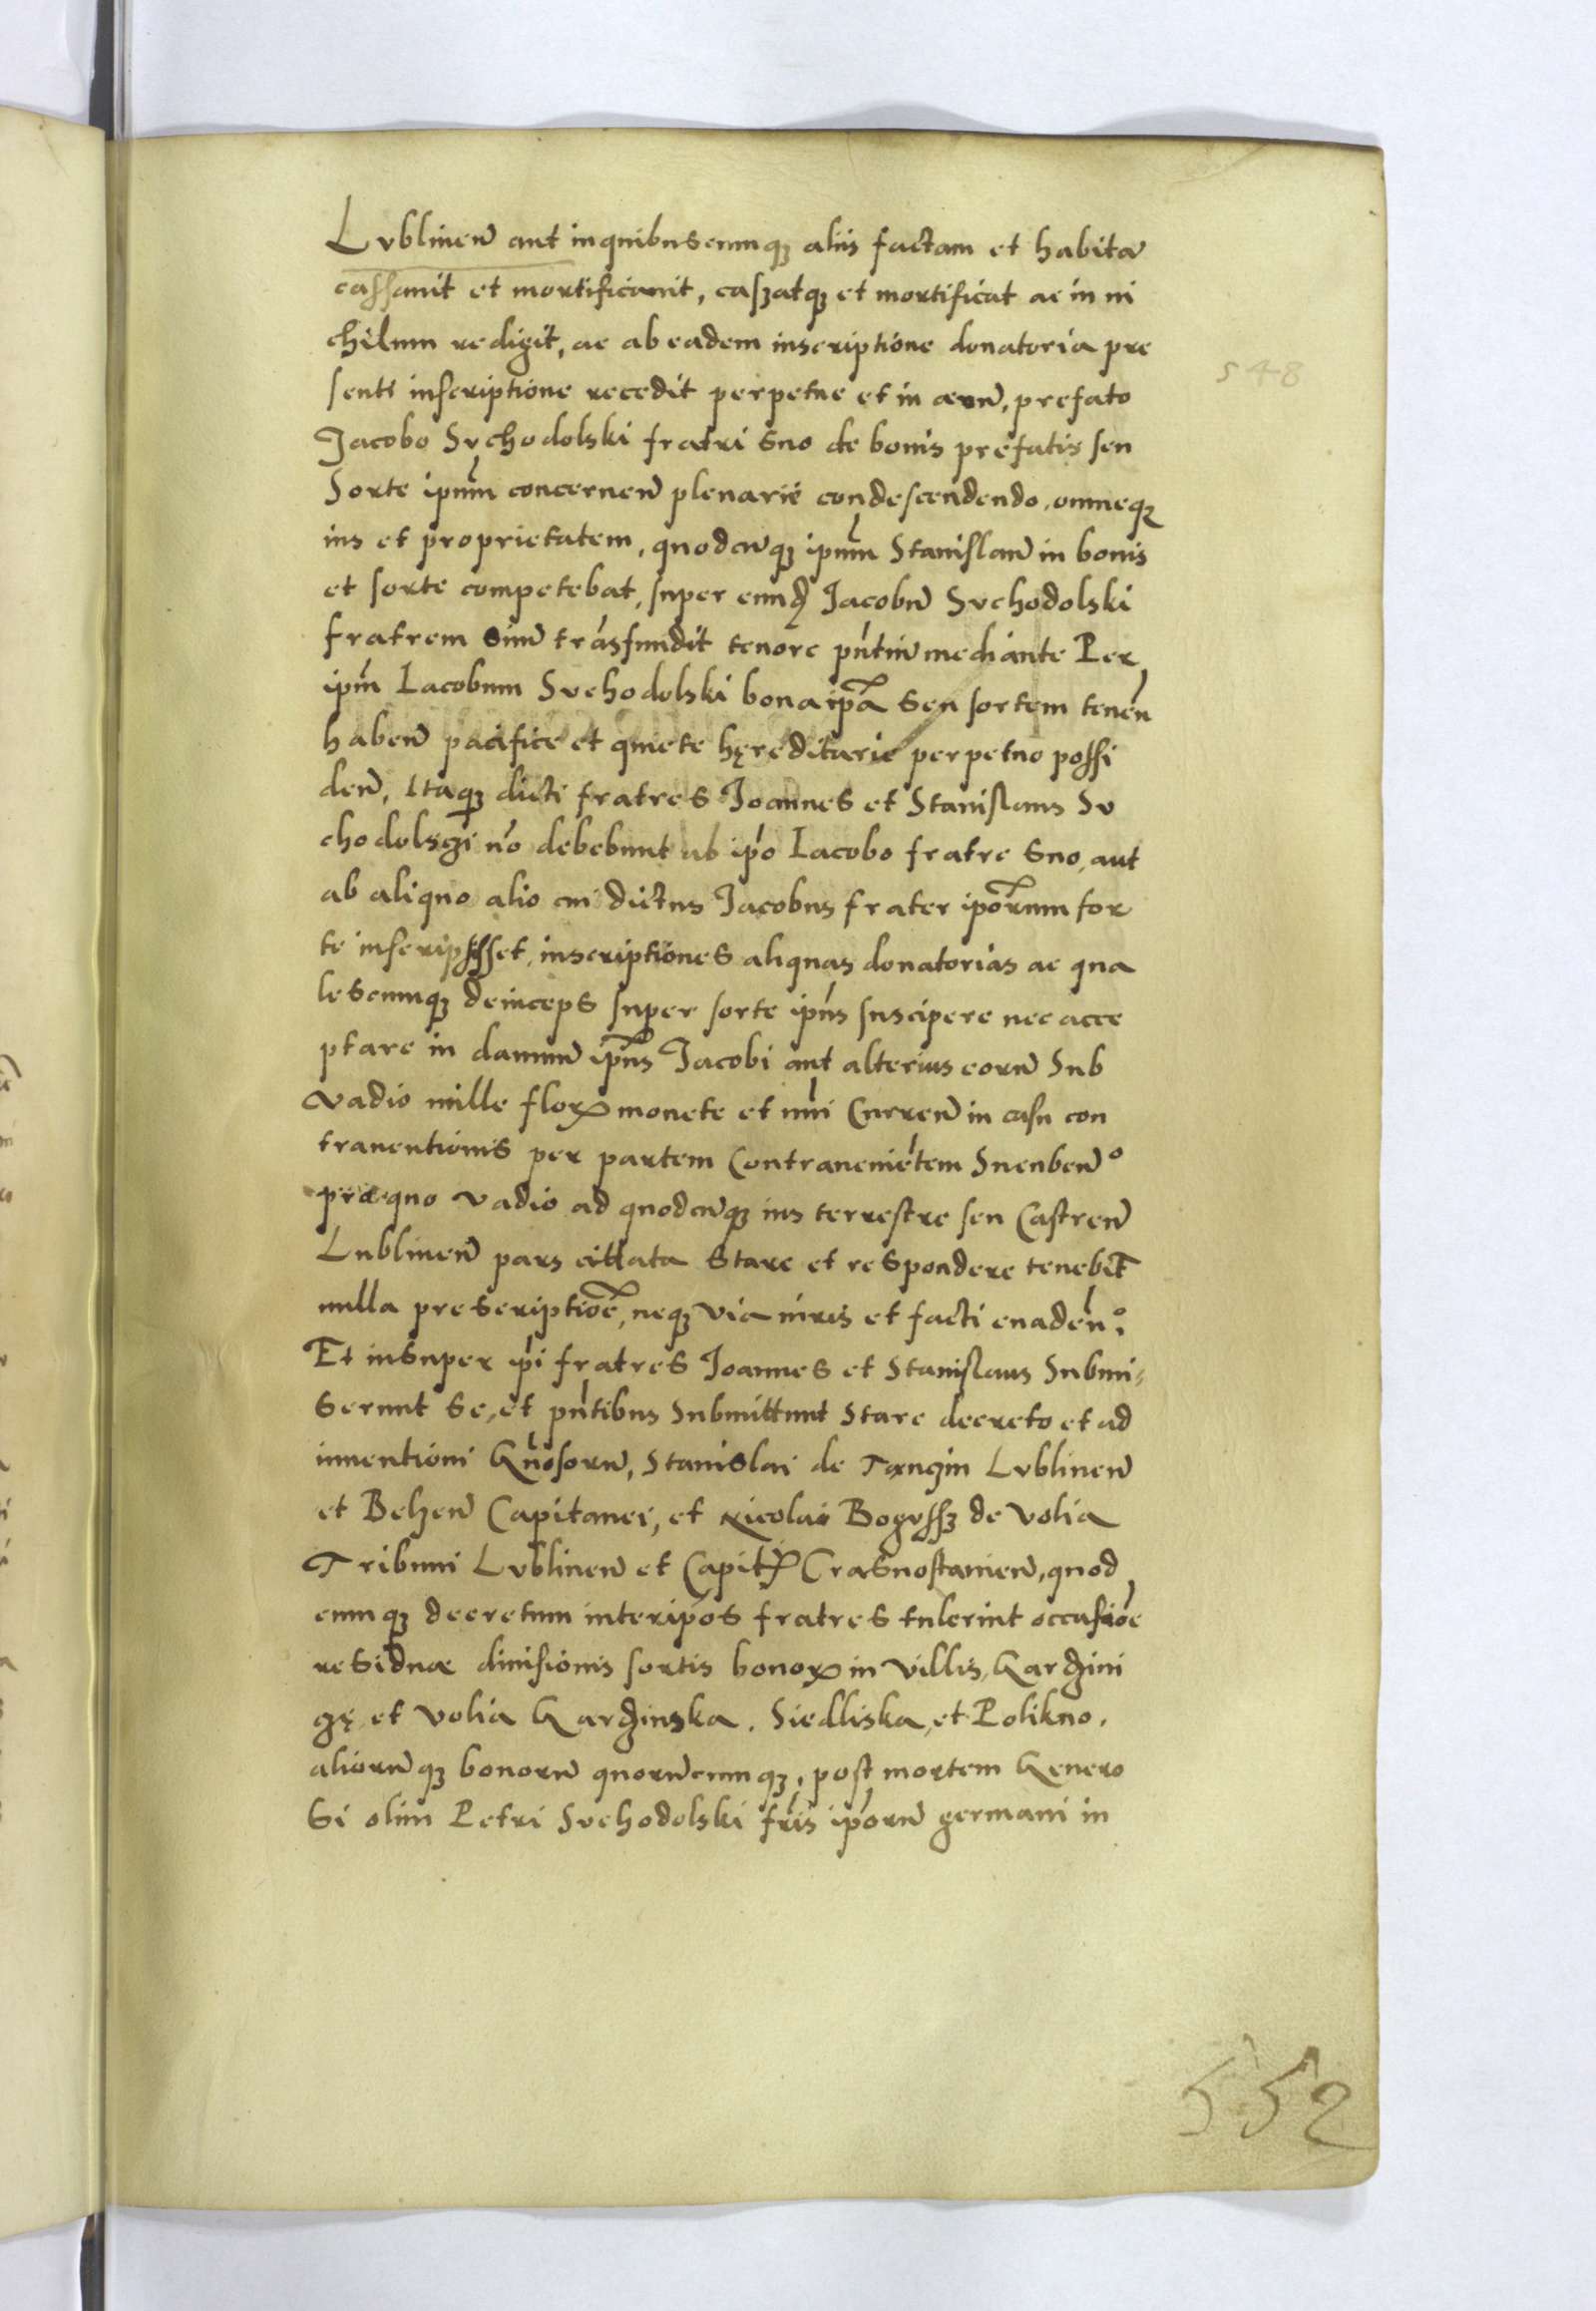 Lvblinen̄ aut inquibuscumqꝫ aliis factam et habitā
cassauit et mortificauit, caszatqꝫ et mortificat ac in ni
chilum redigit, ac ab eadem inscriptione donatoria pre
senti inscriptione recedit perpetue et in aeuū, prefato
Jacobo Svchodolski fratri suo de bonis prefatis seu
Sorte ip̄um concernen̄ plenarie condescendendo, omneqꝫ
ius et proprietatem, quodcūqꝫ ip̄um Stanislaū in bonis
et sorte competebat, super eund̄ Jacobū Svchodolski
fratrem suū trāsfundit tenore pn̄tiū mediante Per
ip̄m Iacobum Svchodolski bona ip̄a seu sortem tenen̄
haben̄ pacifice et quiete hęreditarie perpetuo possi
den̄, Itaqꝫ dicti fratres Joannes et Stanislaus Sv
chodolsczi nō debebunt ab ip̄o Iacobo fratre suo, aut
ab aliquo alio cui dictus Jacobus frater ip̄orum for
te inscripsisset, inscriptiones aliquas donatorias ac qua
lescumqꝫ deinceps super sorte ip̄ius suscipere nec acce
ptare in damnū ip̄ius Jacobi aut alterius eorū Sub
vadio mille florꝝ monete et nūi Curren̄ in casu con
trauentionis per partem Contraueniētem Succuben̄º
pro quo vadio ad quodcūqꝫ ius terrestre seu Castren̄
Lublinen̄ pars cittata Stare et respondere tenebit̄
nulla prescriptiōe, neqꝫ via iuris et facti euaden̄º.
Et insuper ip̄i fratres Joannes et Stanislaus Submi-
serunt se, et pn̄tibus Submittunt Stare decreto et ad
inuentioni Gn̄osorū, Stanislai de Tanczin Lvblinen̄
et Belzen̄ Capitanei, et Nicolai Bogvssꝫ de Volia
Tribuni Lvblinen̄ et Capit̄ Crasnostauien̄, quod
cumqꝫ decretum inter ip̄os fratres tulerint occasiōe
residuae diuisionis sortis bonoꝝ in villis, Gardzini
czę et Volia Gardzinska, Siedliska, et Polikno,
aliorūqꝫ bonorū quorūcumqꝫ, post mortem Genero
si olim Petri Svchodolski fr̄is ip̄orū germani in
548
552